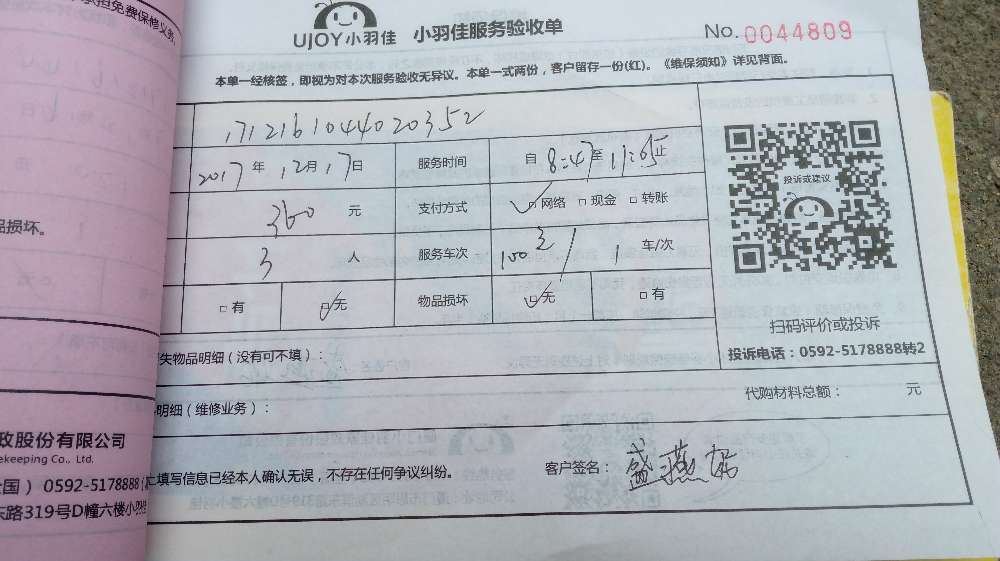 承担免费保修义务。
UJOY小羽佳 小羽佳服务验收单
No. 0044809
本单一经核签，即视为对本次服务验收无异议。本单一式两份，客户留存一份(红)。《维保须知》详见背面。
1712161044020352
2017年 12月 17日 服务时间 自 8:47至 11:05止
360 元 支付方式 ✓□网络 □现金 □转账
品损坏。
3 人 服务车次 100元/1 车/次
□有 ☑无 物品损坏 ☑无 □有
投诉或建议
扫码评价或投诉
投诉电话：0592-5178888转2
失物品明细（没有可不填）：
代购材料总额： 元
明细（维修业务）：
政股份有限公司
ekeeping Co., Ltd.
填写信息已经本人确认无误，不存在任何争议纠纷。
客户签名：盛燕
全国） 0592-5178888
东路319号D幢六楼小羽